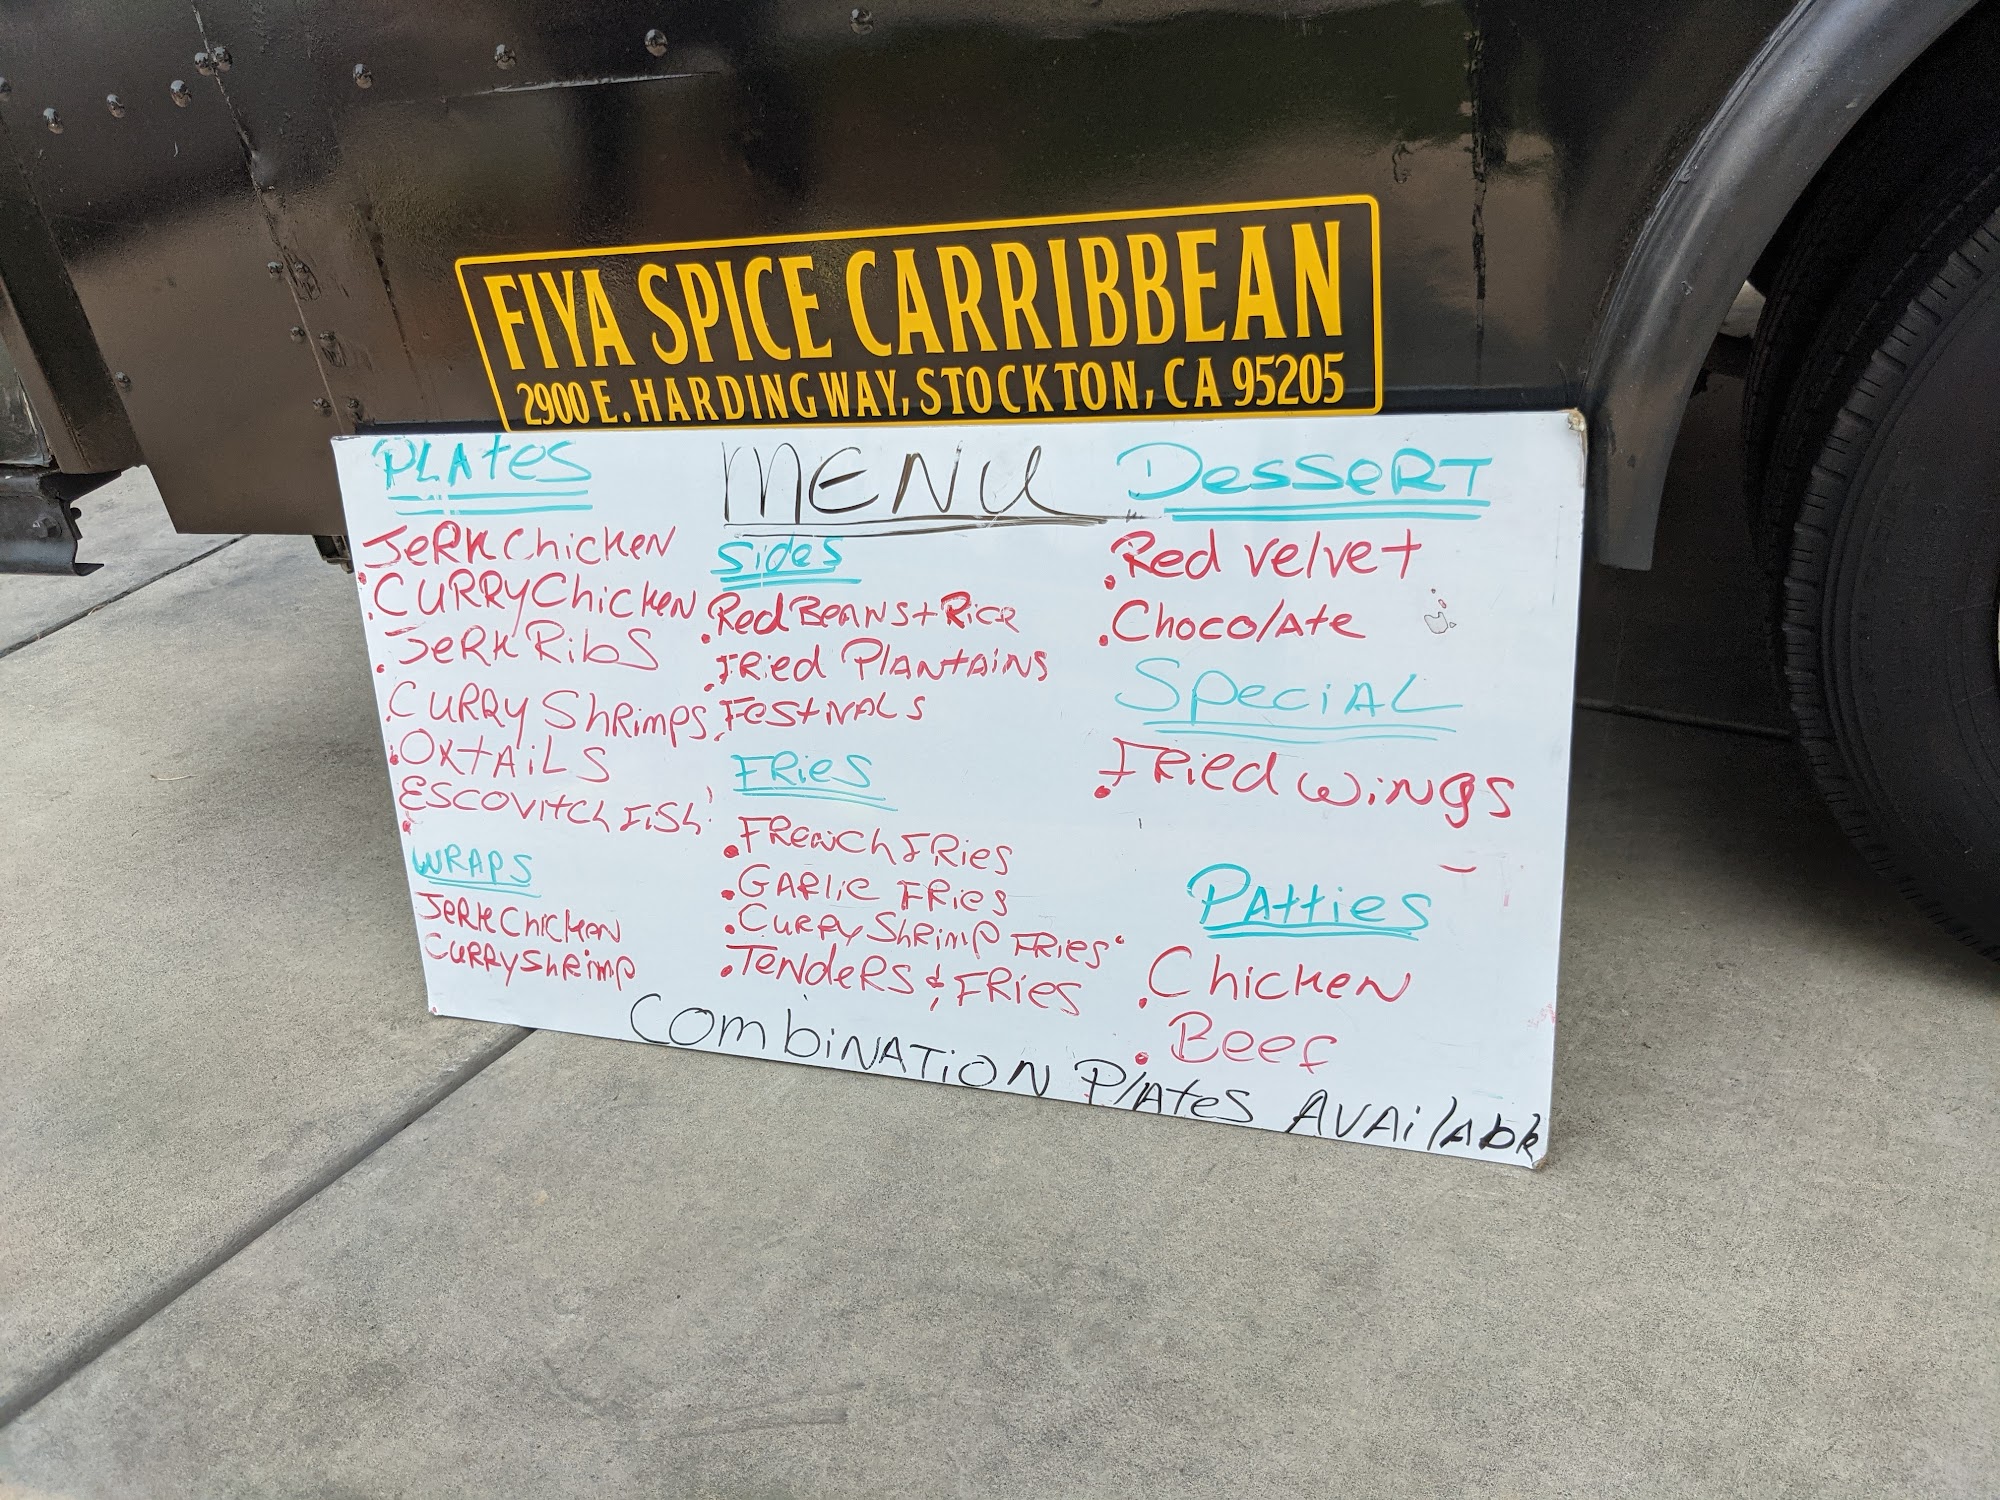 FIYA SPICE CARRIBBEAN
2900 E. HARDING WAY, STOCKTON, CA 95205
MENU
PLATES
JERK CHICKEN
CURRY CHICKEN
JERK RIBS
CURRY SHRIMPS
OXTAILS
ESCOVITCH FISH
WRAPS
JERK CHICKEN
CURRY SHRIMP
Sides
Red BEANS + Rice
FRied PlANtAiNS
FestivALS
FRies
FRench FRies
GARlic FRies
CURRY ShRimp FRies
TENdeRS & FRies
DesseRT
Red velvet
ChocolAte
SpeciAL
FRied wings
PAtties
Chicken
Beef
COMbiNATiON PlAtes AvAilAble